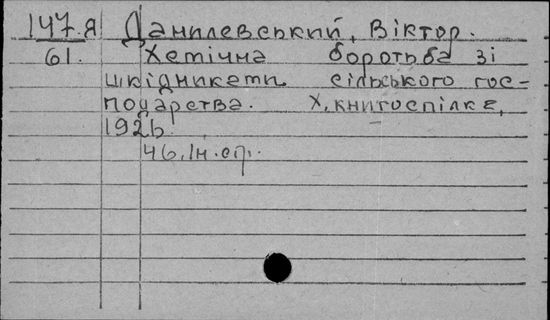 147.Я Данилевський, Віктор.
61. Хемічна боротьба зі
шкідниками сільського гос-
подарства. Х, книгоспілка,
1926.
46, Ін. ст.